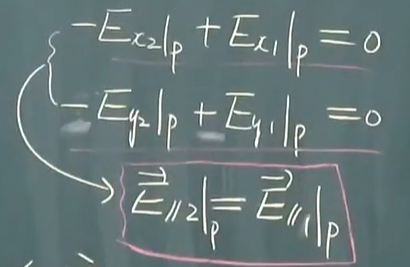 -E_{x2}|_p + E_{x1}|_p = 0
-E_{y2}|_p + E_{y1}|_p = 0
\vec{E}_{//2}|_p = \vec{E}_{//1}|_p